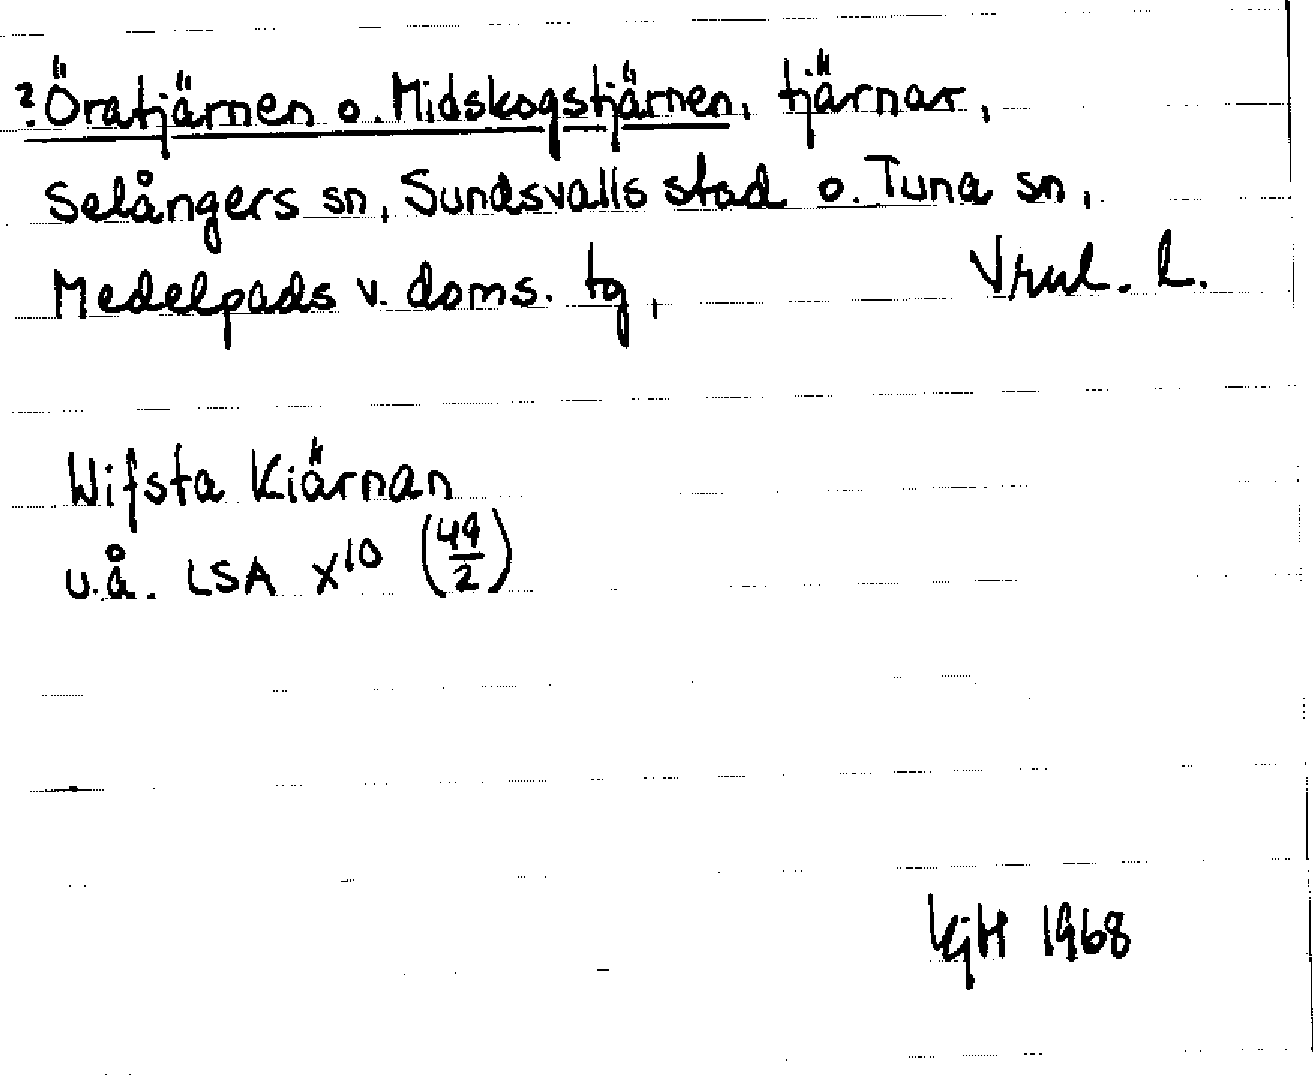 ?Öratjärnen o. Midskogstjärnen, tjärnar,
Selångers sn, Sundsvalls stad o. Tuna sn,
Medelpads v. doms. tg,
Vrul. L.
Wifsta Kiärnan
u.å. LSA X10 (49/2)
KjH 1968